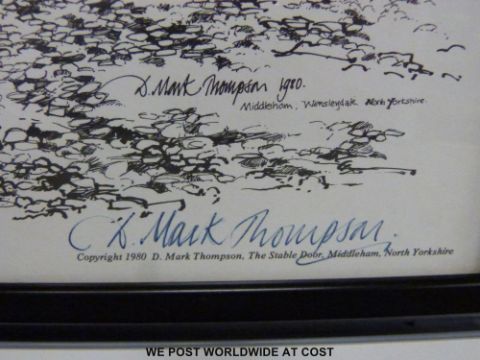 D. Mark Thompson 1980.
Middleham, Wensleydale North Yorkshire.
D. Mark Thompson.
Copyright 1980 D. Mark Thompson, The Stable Door, Middleham, North Yorkshire
WE POST WORLDWIDE AT COST